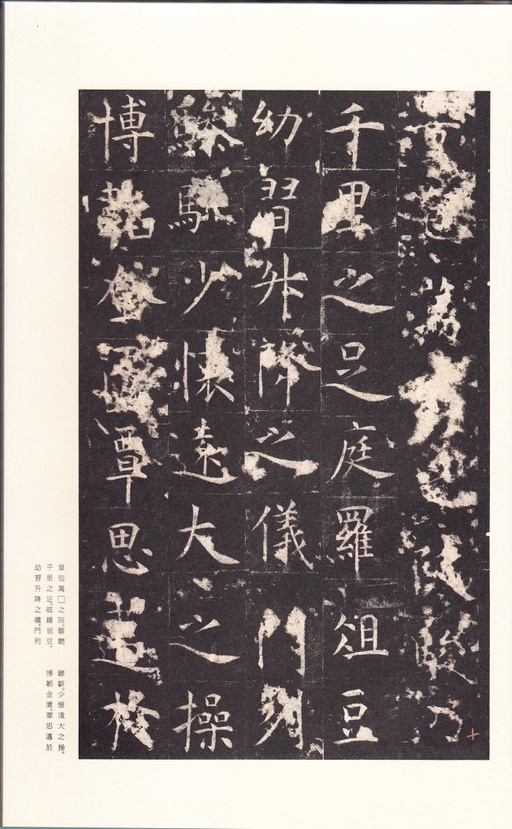 之陂
千里之足庭羅俎豆
幼習升降之儀門列
驂駟少懷遠大之操
博韜金匱覃思邁於
量包萬□之陂。
千里之足。庭羅俎豆。
幼習升降之儀。門列
驂駟。少懷遠大之操。
博韜金匱。覃思邁於